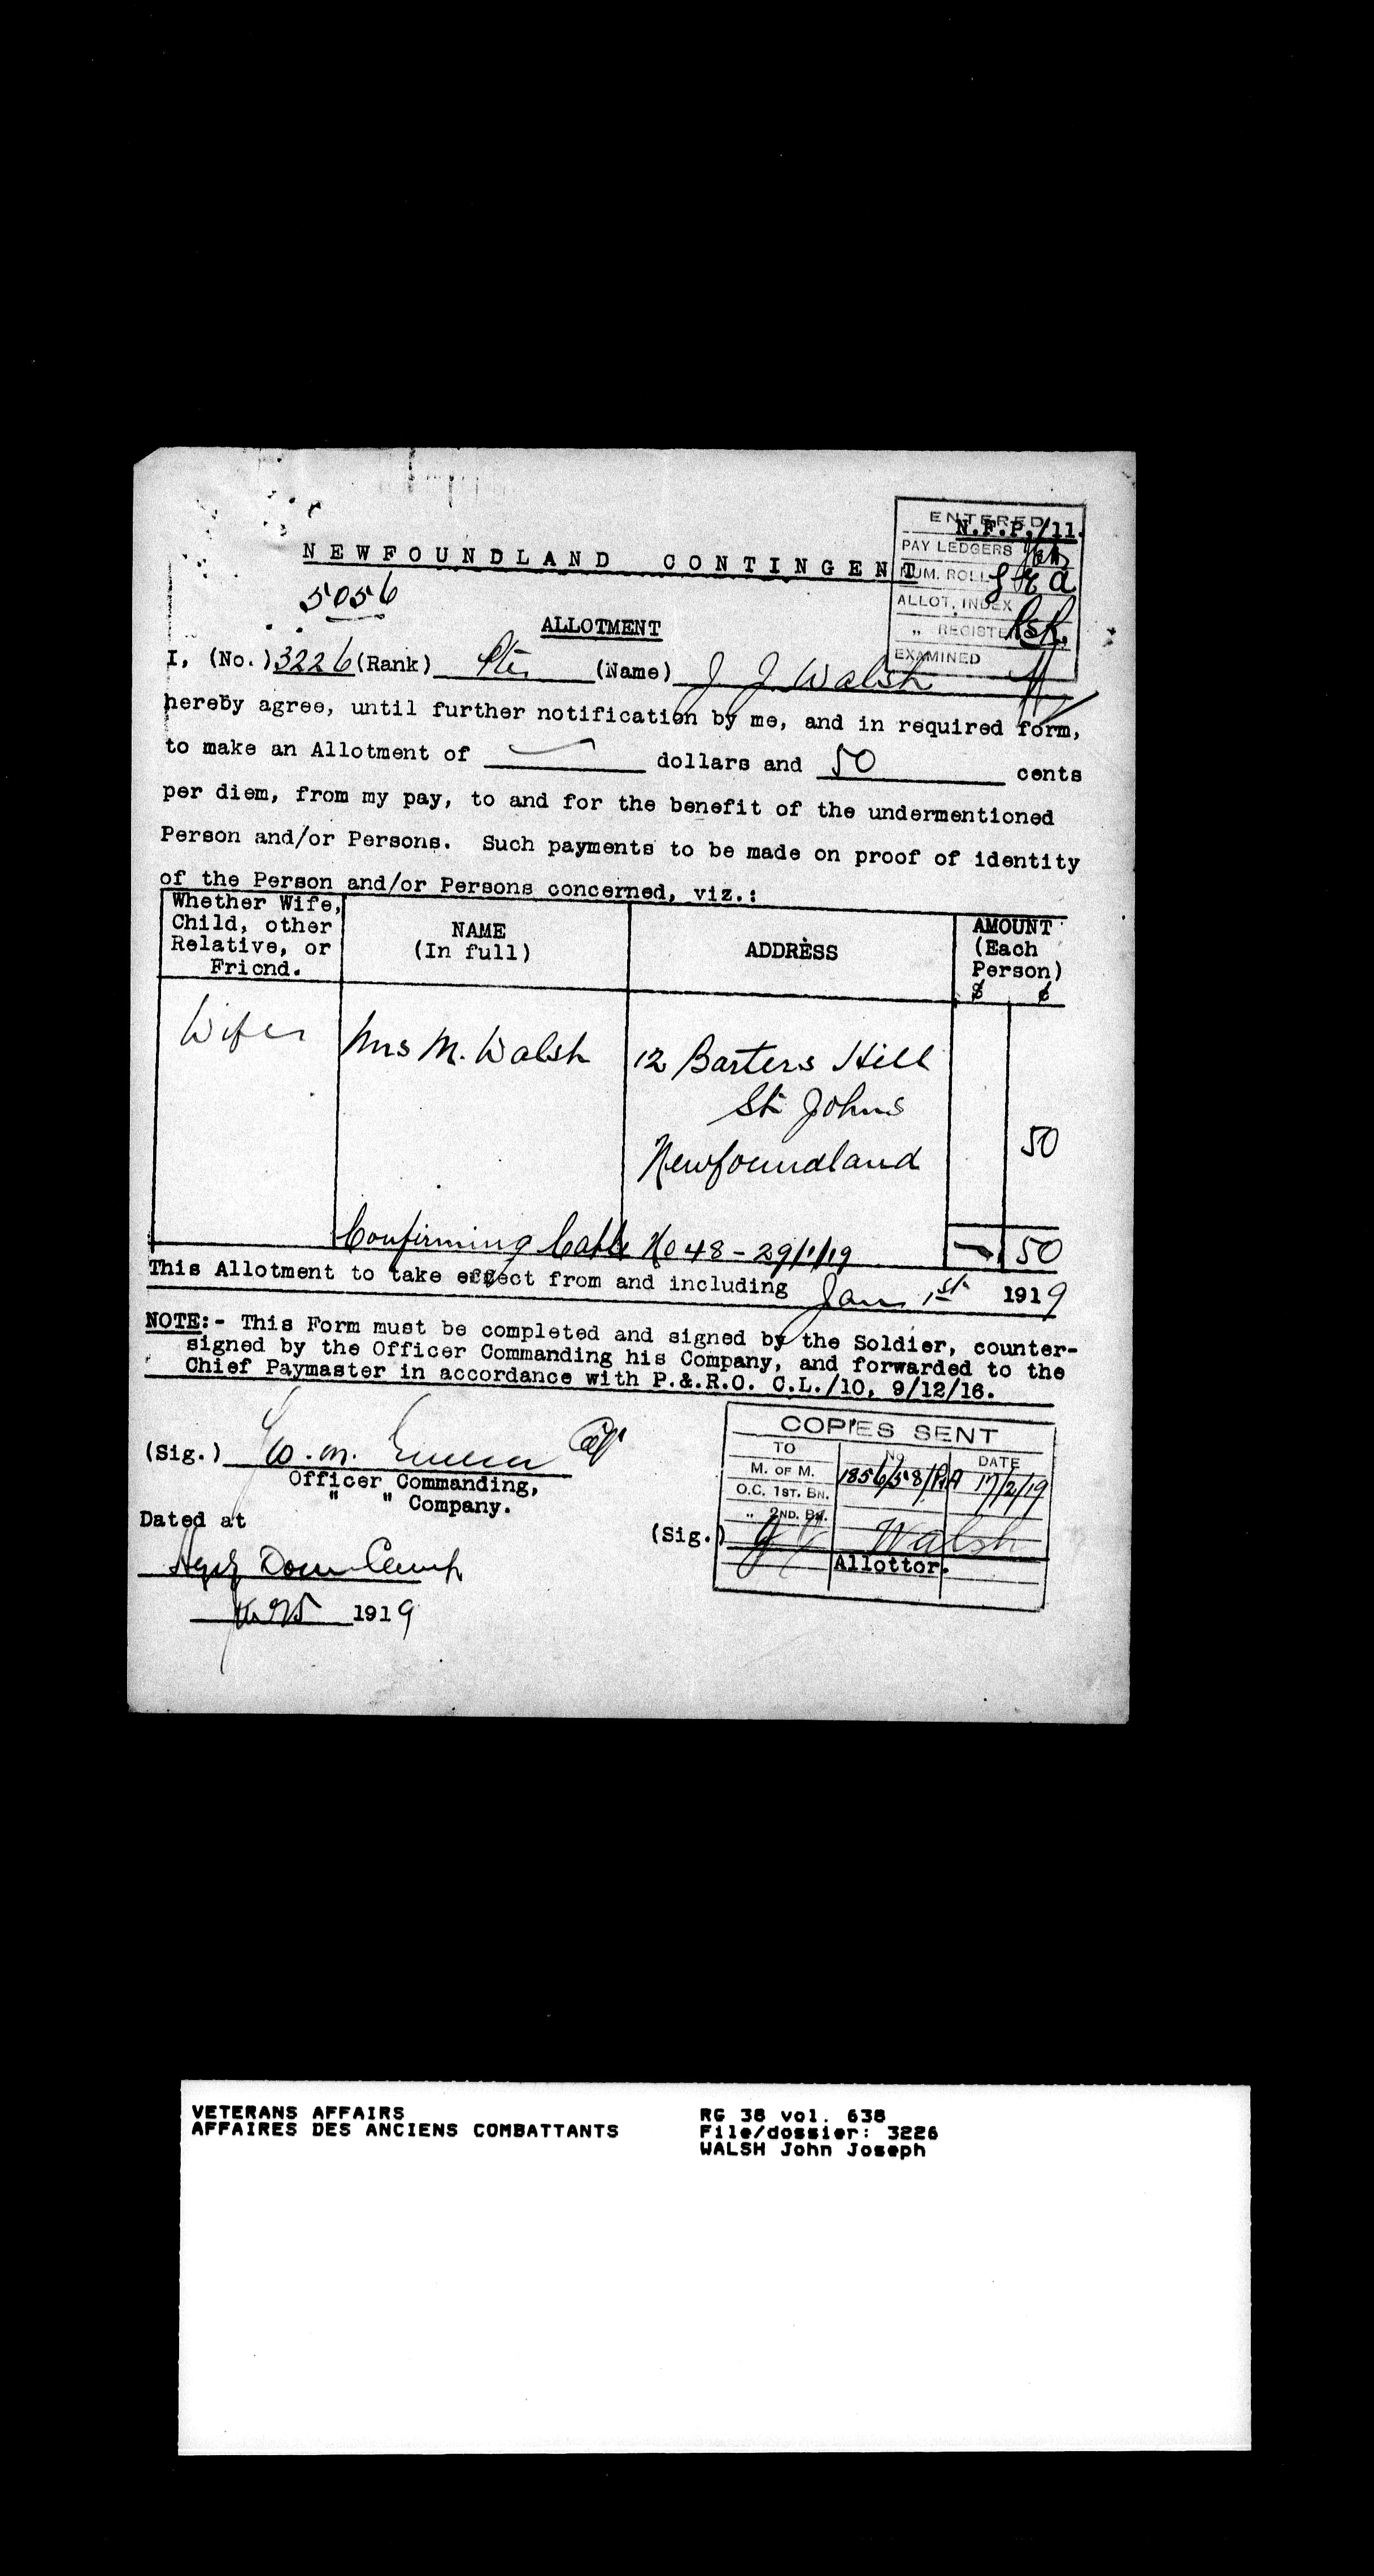 ENTERED
N.F.P./11.
PAY LEDGERS
NEWFOUNDLAND CONTINGENT
NUM. ROLL
5056
ALLOT. INDEX
ALLOTMENT
" REGISTER
EXAMINED
I, (No.) 3226 (Rank) Pte (Name) J J Walsh
hereby agree, until further notification by me, and in required form,
to make an Allotment of — dollars and 50 cents
per diem, from my pay, to and for the benefit of the undermentioned
Person and/or Persons. Such payments to be made on proof of identity
of the Person and/or Persons concerned, viz.:
Whether Wife, Child, other Relative, or Friend.
NAME (In full)
ADDRESS
AMOUNT (Each Person) $ ¢
Wife Mrs M. Walsh 12 Barters Hill
St Johns
Newfoundland 50
Confirming Cable No 48 - 29/1/19 — 50
This Allotment to take effect from and including Jan 1st 1919
NOTE:- This Form must be completed and signed by the Soldier, counter-
signed by the Officer Commanding his Company, and forwarded to the
Chief Paymaster in accordance with P.&.R.O. C.L./10, 9/12/16.
COPIES SENT
TO NO DATE
M. OF M. 17/2/19
O.C. 1ST. BN.
" 2ND. BN.
(Sig.) Capt
Officer Commanding,
" " Company.
Dated at
(Sig.) J J Walsh
Allottor.
Camp
1919
VETERANS AFFAIRS
AFFAIRES DES ANCIENS COMBATTANTS
RG 38 vol. 638
File/dossier: 3226
WALSH John Joseph